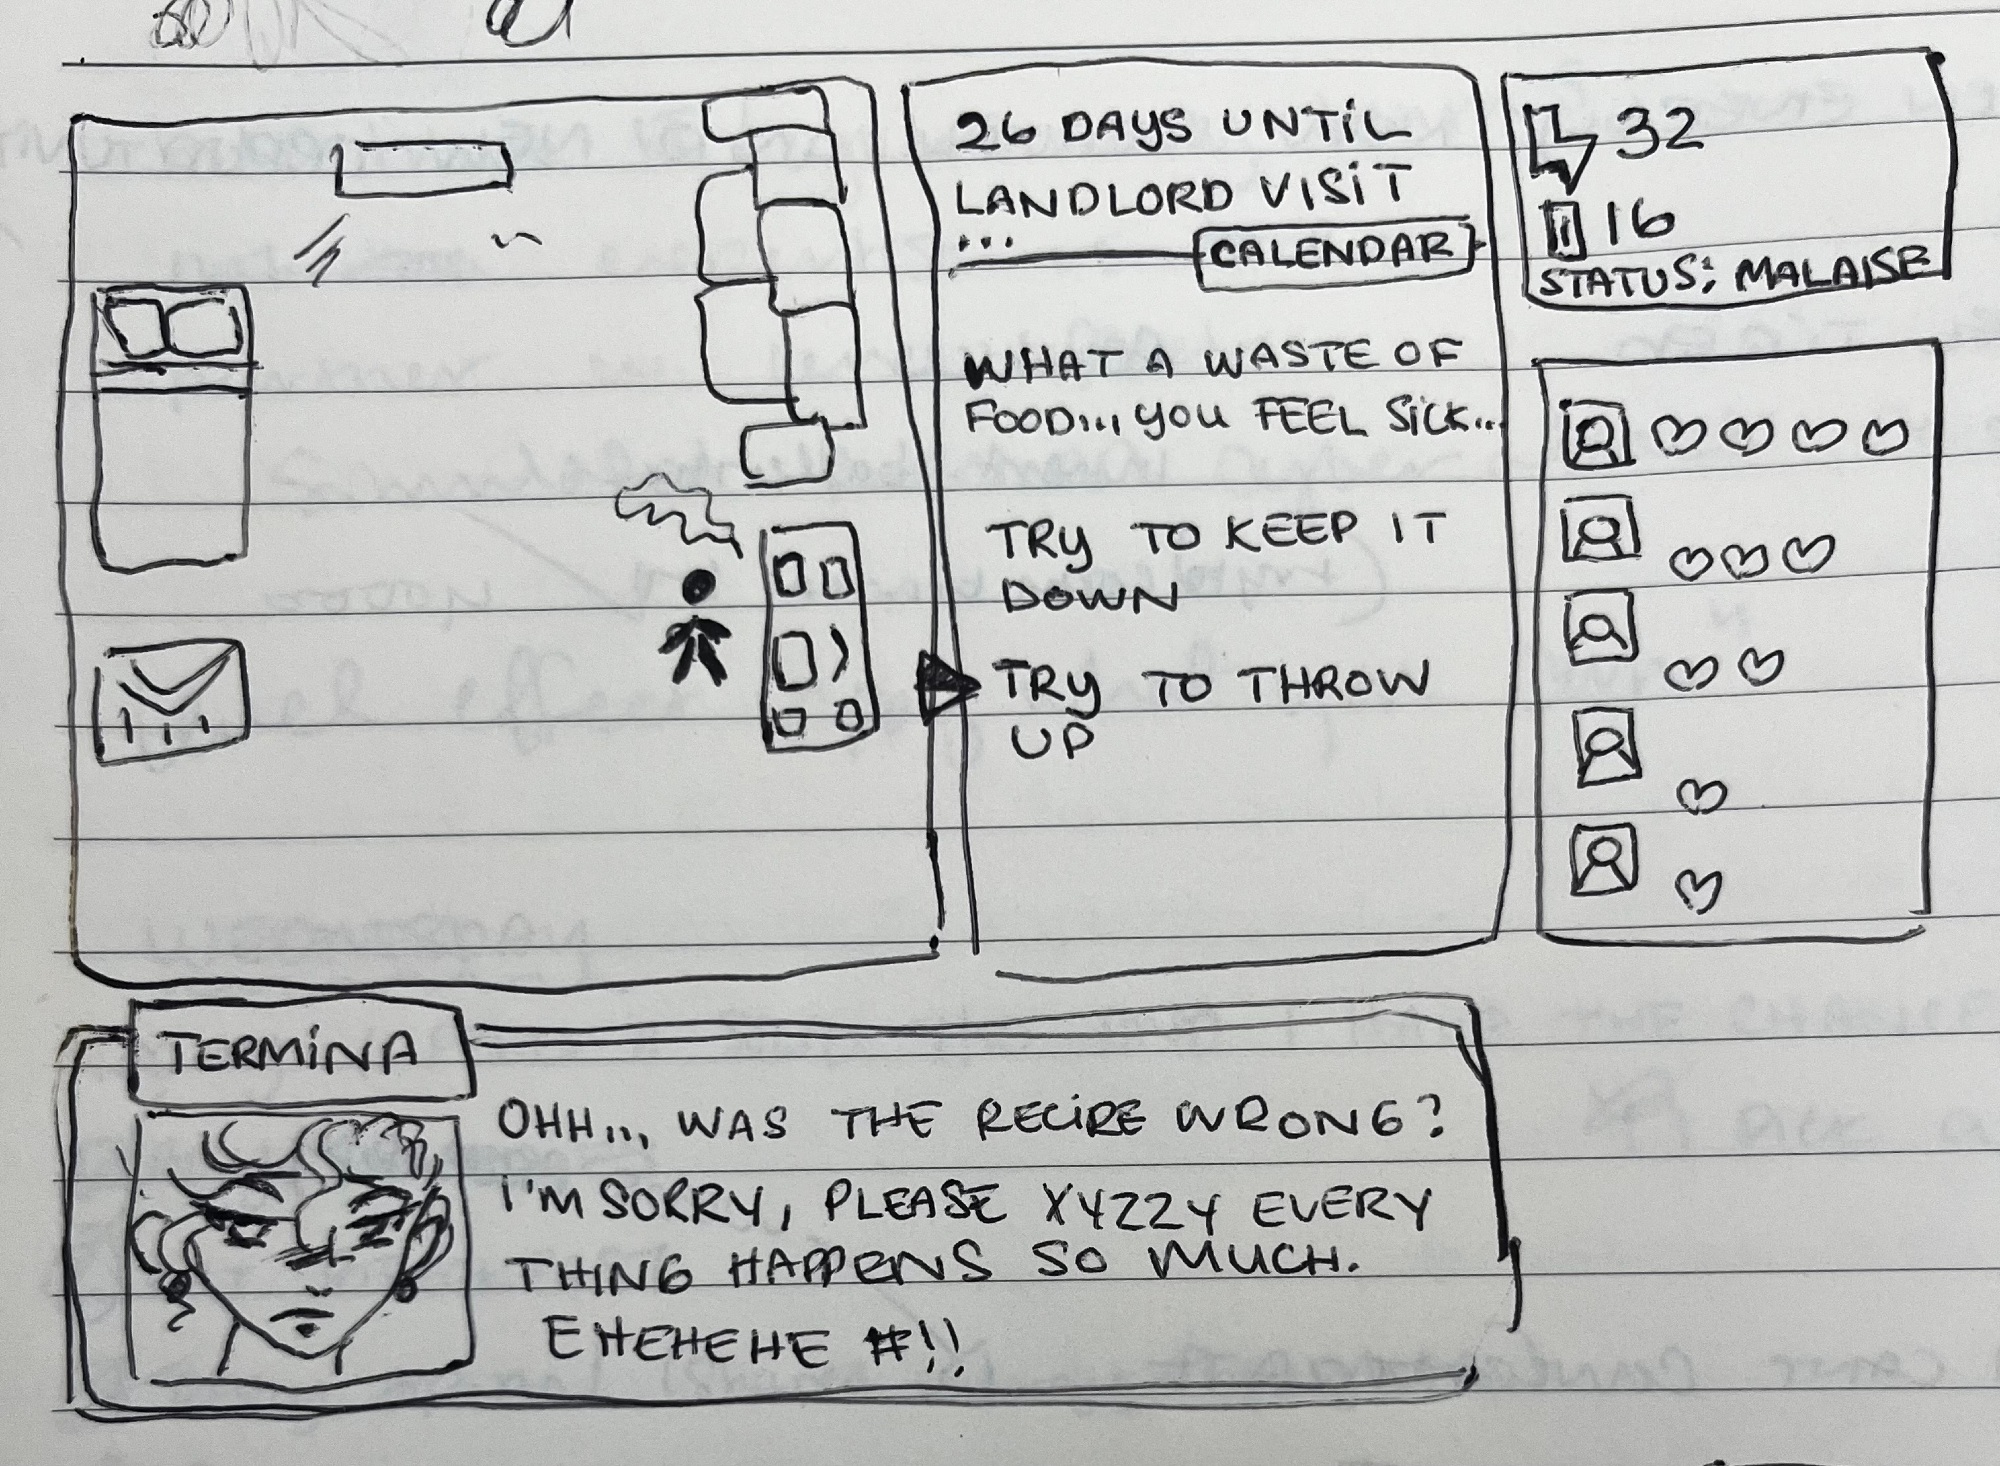 26 DAYS UNTIL
LANDLORD VISIT
...
CALENDAR
WHAT A WASTE OF
FOOD... YOU FEEL SICK...
TRY TO KEEP IT
DOWN
TRY TO THROW
UP
32
16
STATUS: MALAISE
TERMINA
OHH... WAS THE RECIPE WRONG?
I'M SORRY, PLEASE XYZZY EVERY
THING HAPPENS SO MUCH.
EHEHEHE #!!